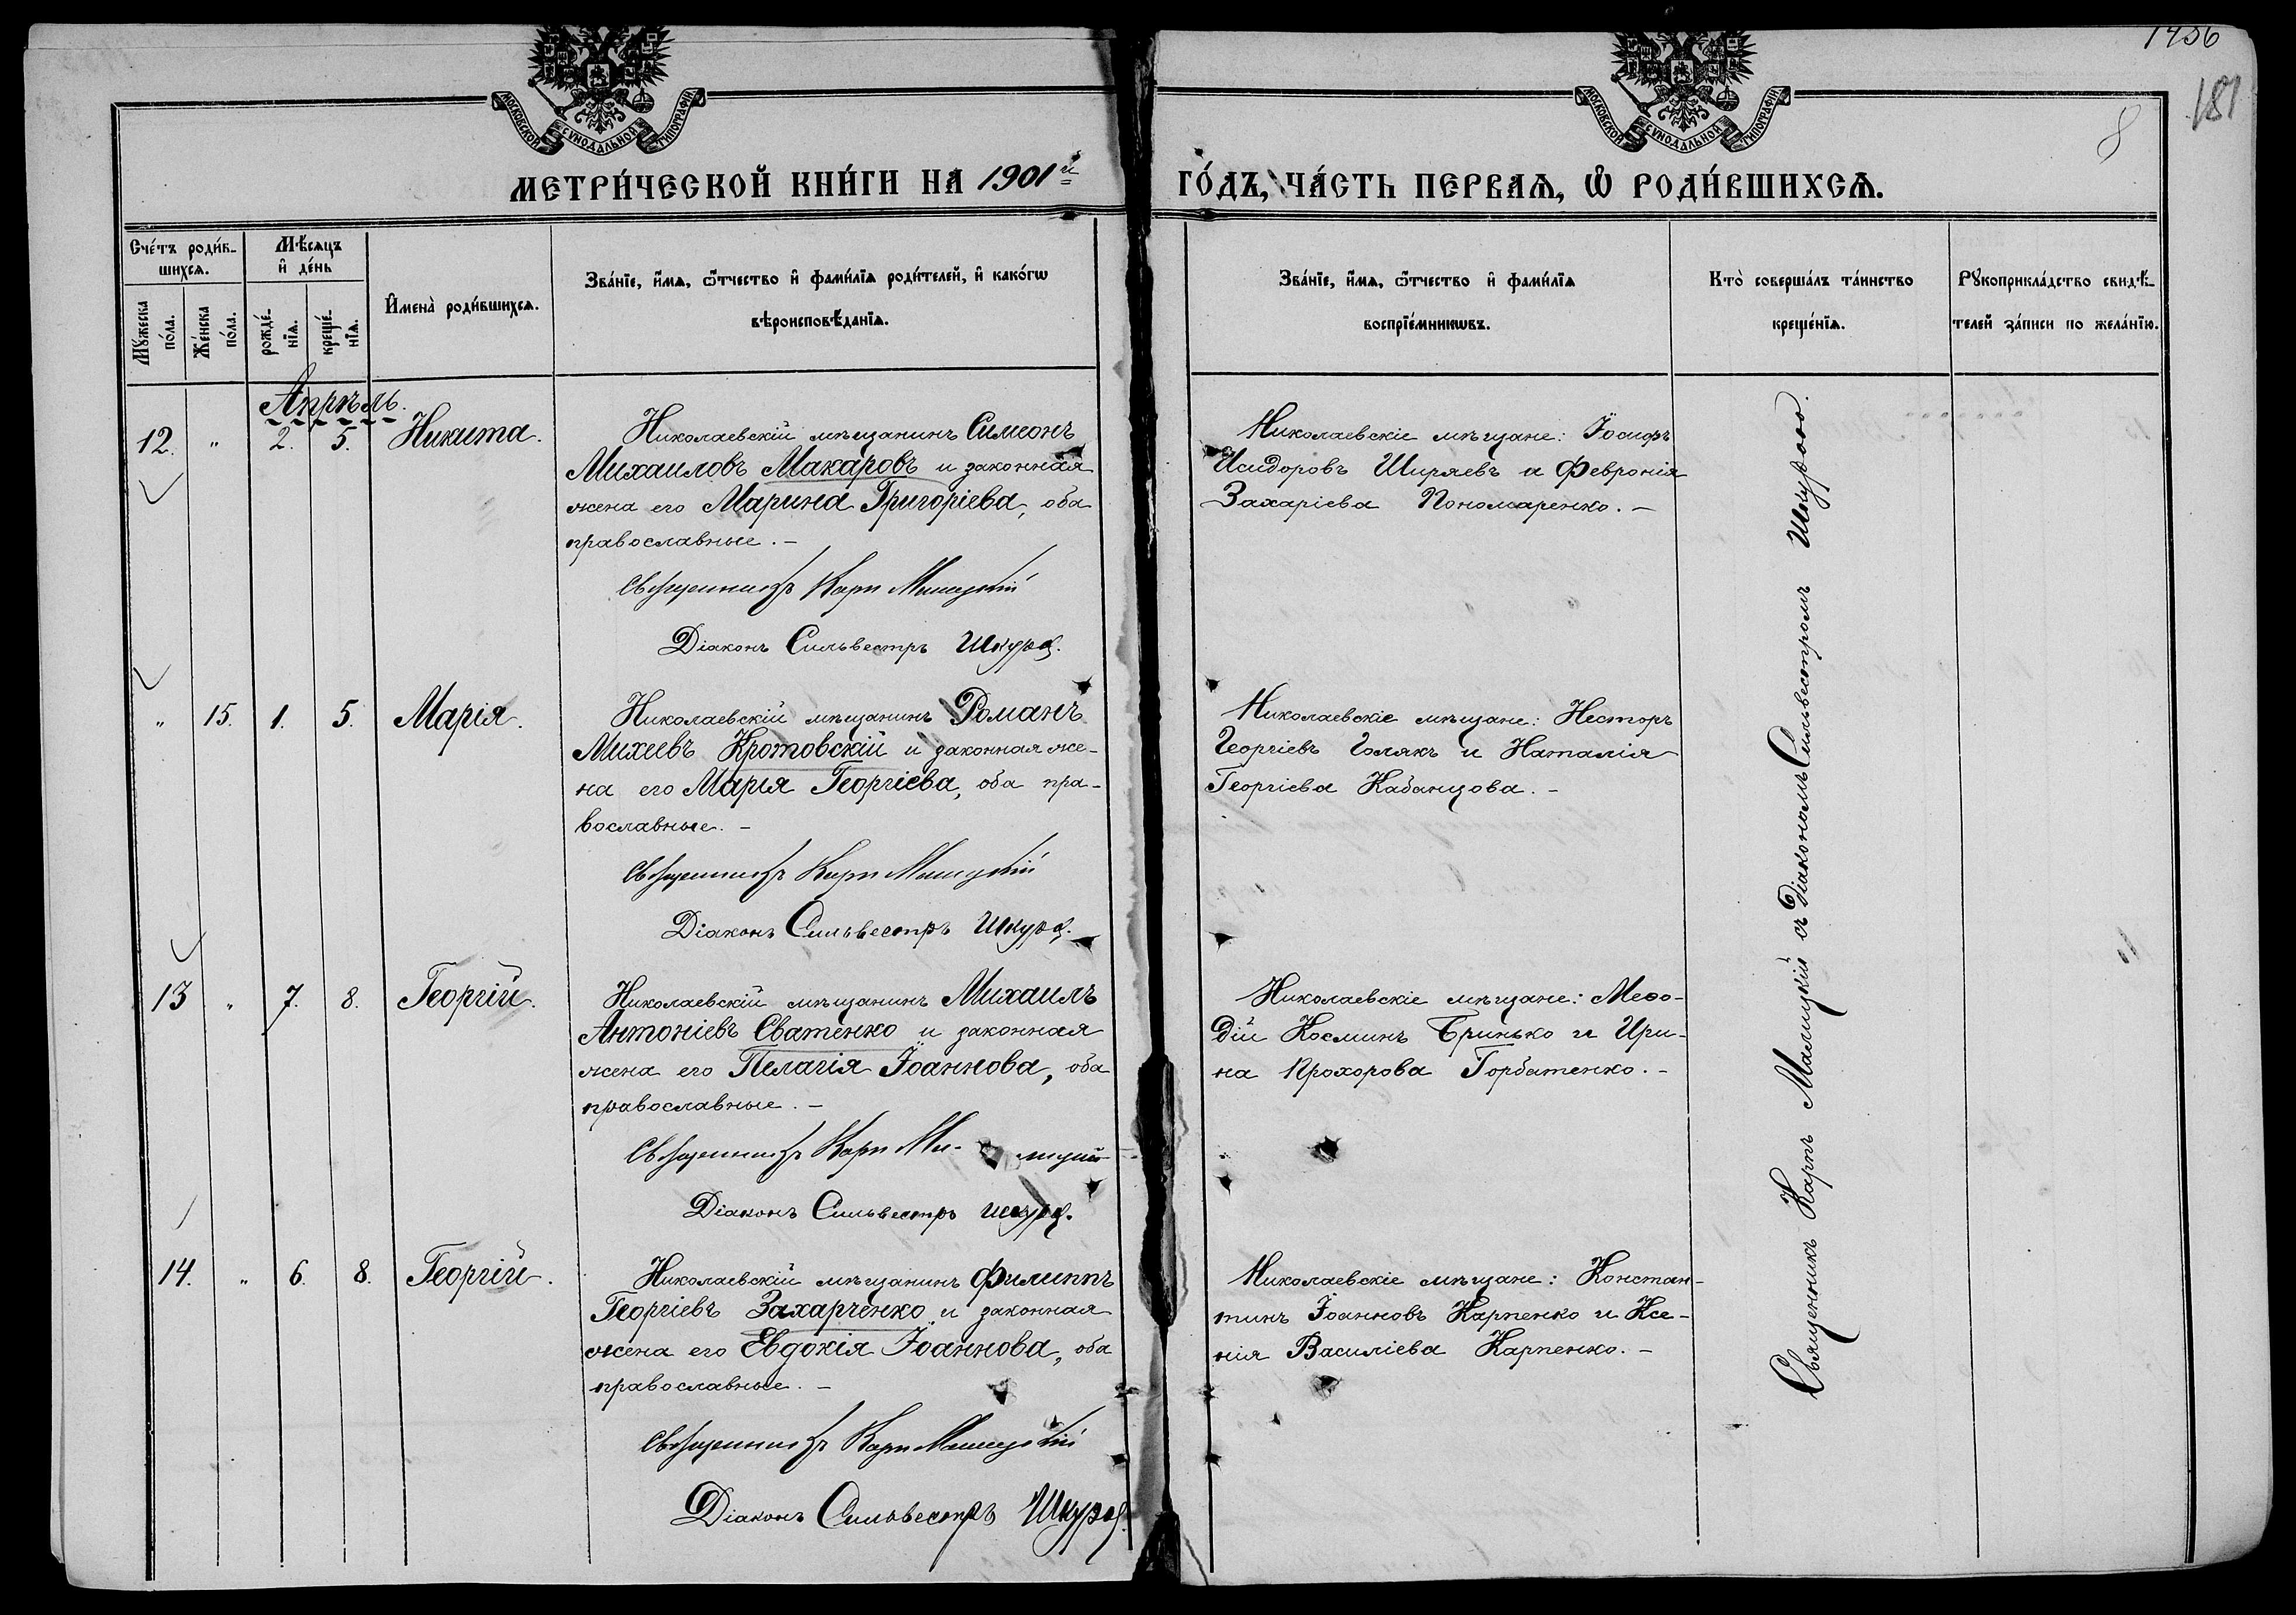 1456
181
8
МОСКОВСКОЙ СѴНОДАЛЬНОЙ ТИПОГРАФІИ
МОСКОВСКОЙ СѴНОДАЛЬНОЙ ТИПОГРАФІИ
МЕТРИ́ЧЕСКОЙ КНИ́ГИ НА 1901й
ГО́ДЪ, ЧА́СТЬ ПЕ́РВАѦ, Ѽ РОДИ́ВШИХСѦ.
Сче́тъ роди́в-
шихсѧ.
Мѣ́сѧцъ
и҆ де́нь
Мꙋ́жеска
по́ла.
Же́нска
по́ла.
рожде́-
нїѧ.
креще́-
нїѧ.
И҆мена̀ роди́вшихсѧ.
Зва́нїе, и҆́мѧ, ѻ҆́тчество и҆ фами́лїѧ роди́телей, и҆ како́гѡ
вѣроисповѣ́данїѧ.
Зва́нїе, и҆́мѧ, ѻ҆́тчество и҆ фами́лїѧ
воспрїе́мникѡвъ.
Кто̀ соверша́лъ та́инство
креще́нїѧ.
Рꙋкоприкла́дство свидѣ́-
телей за́писи по жела́нїю.
Апрѣль.
12. " 2. 5. Никита.
Николаевскій мѣщанинъ Симеонъ
Михаиловъ Макаровъ и законная
жена его Марина Григоріева, оба
православные. –
Священникъ Карп Малицкій
Діаконъ Сильвестръ Шкура.
Николаевскіе мѣщане: Іосифъ
Исидоровъ Ширяевъ и Февронія
Захаріева Пономаренко. –
" 15. 1. 5. Марія.
Николаевскій мѣщанинъ Романъ
Михеевъ Кротовскій и законная же-
на его Марія Георгіева, оба пра-
вославные. –
Священникъ Карп Малицкій
Діаконъ Сильвестръ Шкура.
Николаевскіе мѣщане: Несторъ
Георгіевъ Голякъ и Наталія
Георгіева Кабанцова. –
13 " 7. 8. Георгій.
Николаевскій мѣщанинъ Михаилъ
Антоніевъ Сватенко и законная
жена его Пелагія Іоаннова, оба
православные. –
Священникъ Карп Ма- лицкій
Діаконъ Сильвестръ Шкура.
Николаевскіе мѣщане: Меѳо-
дій Косминъ Бринько и Ири-
на Прохорова Горбатенко. –
14. " 6. 8. Георгій.
Николаевскій мѣщанинъ Филиппъ
Георгіевъ Захарченко и законная
жена его Евдокія Іоаннова, оба
православные. –
Священникъ Карп Малицкій
Діаконъ Сильвестръ Шкура.
Николаевскіе мѣщане: Констан-
тинъ Іоанновъ Карпенко и Ксе-
нія Василіева Карпенко. –
Священникъ Карпъ Малицкій съ Діакономъ Сильвестромъ Шкурою.